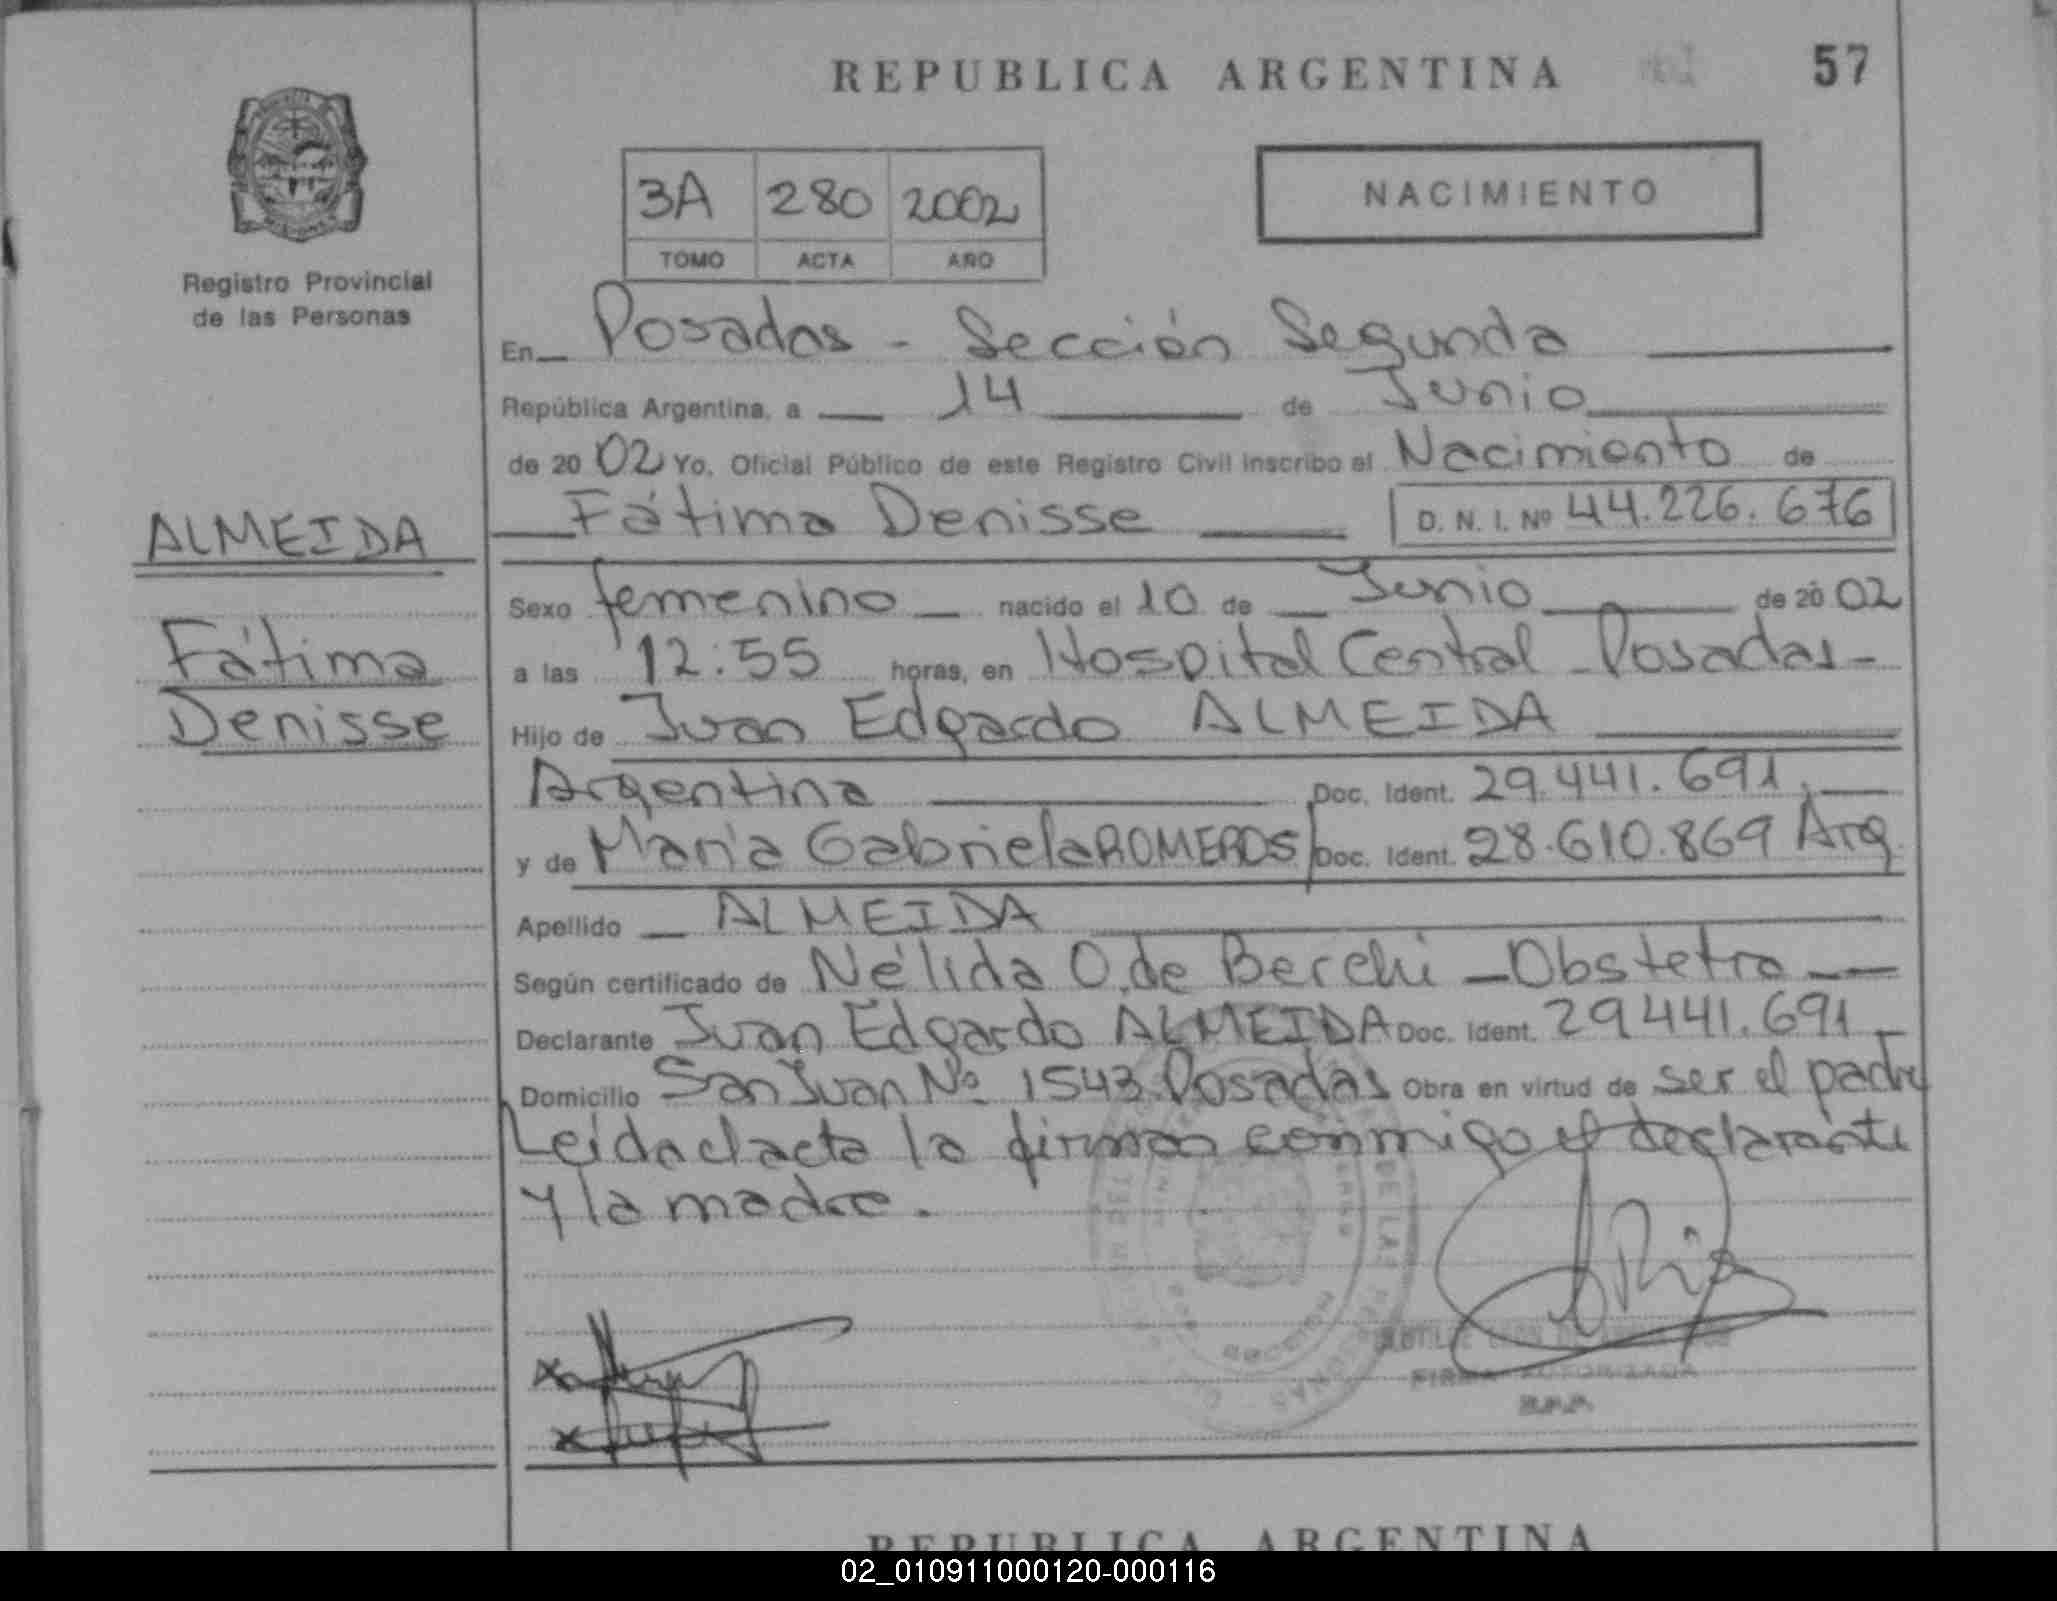 REPUBLICA ARGENTINA 57
3A 280 2002
TOMO ACTA AÑO
NACIMIENTO
Registro Provincial
de las Personas
En Posadas - Sección Segunda
República Argentina, a 14 de Junio
de 2002 Yo, Oficial Público de este Registro Civil inscribo el Nacimiento de
Fátima Denisse D. N. I. Nº 44.226.676
ALMEIDA
Fátima
Denisse
Sexo femenino nacido el 10 de Junio de 2002
a las 12:55 horas, en Hospital Central - Posadas -
Hijo de Juan Edgardo ALMEIDA
Argentina Doc. Ident. 29.441.691
y de María Gabriela ROMEROS Doc. Ident. 28.610.869 Arg
Apellido ALMEIDA
Según certificado de Nélida O. de Berchi - Obstetra
Declarante Juan Edgardo ALMEIDA Doc. Ident. 29441.691
Domicilio San Juan Nº 1543 Posadas Obra en virtud de ser el padre
Leída el acta la firman conmigo el declarante
y la madre.
FIRMA AUTORIZADA
REPUBLICA ARGENTINA
02_010911000120-000116